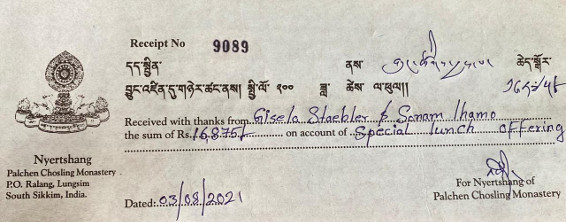 Receipt No 9089
དད་སྦྱིན་ ནས་ ཆེད་སྡོར་
བྱང་འཛིན་དུ་གཉེར་ཚང་ནས། སྤྱི་ལོ་ ༢༠༠ ཟླ་ ཚེས་ ལ་ཕུལ།།
Received with thanks from Gisela Staebler & Sonam lhamo
the sum of Rs. 16,875/- on account of Special lunch offering
Nyertshang
Palchen Chosling Monastery
P.O. Ralang, Lungsim
South Sikkim, India.
For Nyertshang of
Palchen Chosling Monastery
Dated: 03/08/2021